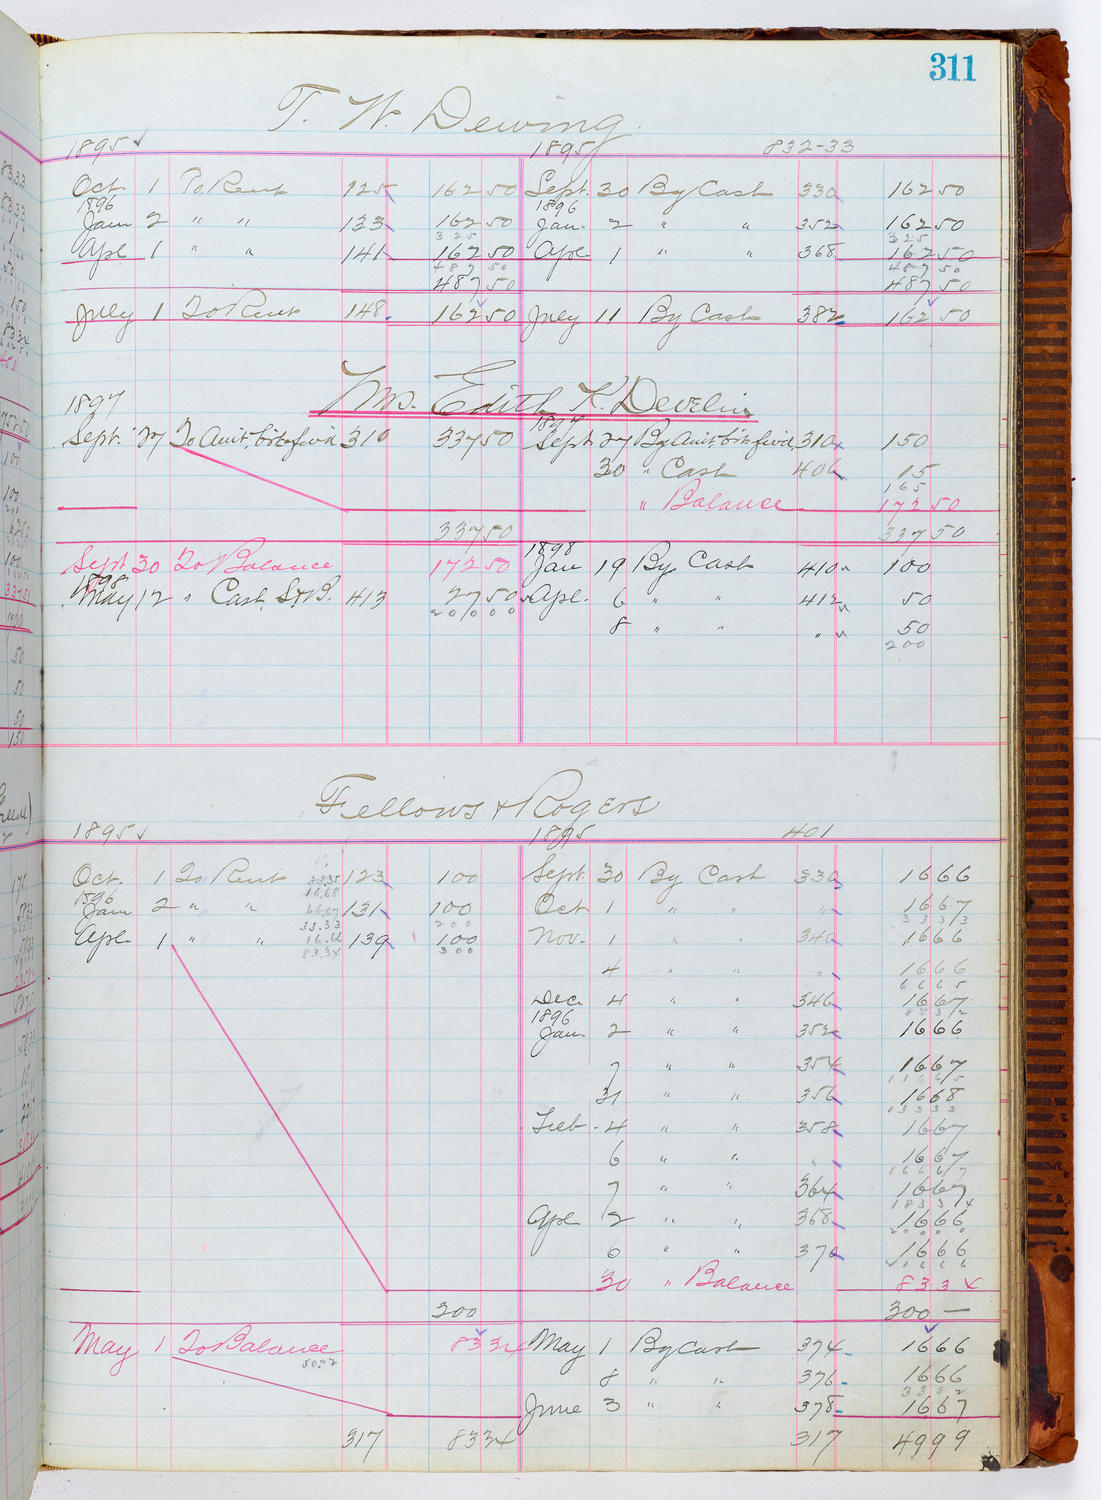 311
T. W. Dewing
1895 1895 832-33
Oct 1 To Rent 125 162 50 Sept. 30 By Cash 330 162 50
1896 1896
Janu 2 " " 133 162 50 Jan. 2 " " 352 162 50
325 325
Apl 1 " " 141 162 50 Apl 1 " " 368 162 50
487 50 487 50
487 50 487 50
July 1 To Rent 148 162 50 July 11 By Cash 382 162 50
Mrs. Edith K. Develin
1897 1897
Sept. 27 To Amt. brt fwd 310 337 50 Sept 27 By Amt. brt fwd. 310 150
30 " Cash 406 15
165
" Balance 172 50
337 50 337 50
1898
Sept 30 To Balance 172 50 Jan 19 By Cash 410 100
1898
May 12 " Cash, S.&B. 413 27 50 Apl. 6 " " 412 50
200 00
8 " " " 50
200
Fellows & Rogers
1895 1895 401
Oct. 1 To Rent 33.35 123 100 Sept. 30 By Cash 330 16 66
1896 16.68
Janu 2 " " 66.67 131 100 Oct 1 " " " 16 67
33.33 200 33 33
Apl 1 " " 16.66 139 100 Nov. 1 " " 340 16 66
83.34 300
4 " " " 16 66
66 65
Dec. 4 " " 346 16 67
83 32
1896
Jan. 2 " " 352 16 66
7 " " 354 16 67
116 65
31 " " 356 16 68
133 33
Feb. 4 " " 358 16 67
6 " " " 16 67
166 67
7 " " 364 16 67
183 34
Apl 2 " " 368 16 66
200 00
6 " " 370 16 66
216 66
30 " Balance 83 34
300 300 —
May 1 To Balance 83 34 May 1 By Cash 374 16 66
50.02
8 " " 376 16 66
33 32
June 3 " " 378 16 67
317 83 34 317 49 99